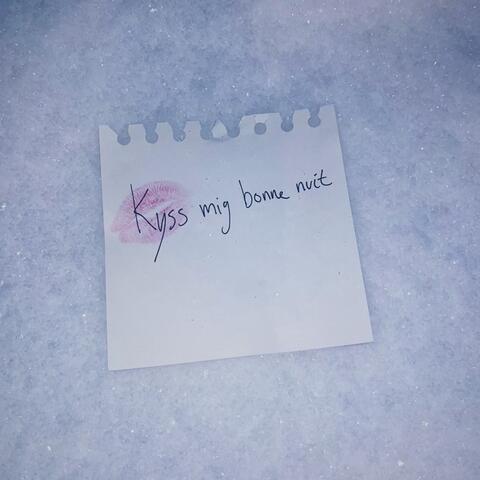 Kyss mig bonne nuit